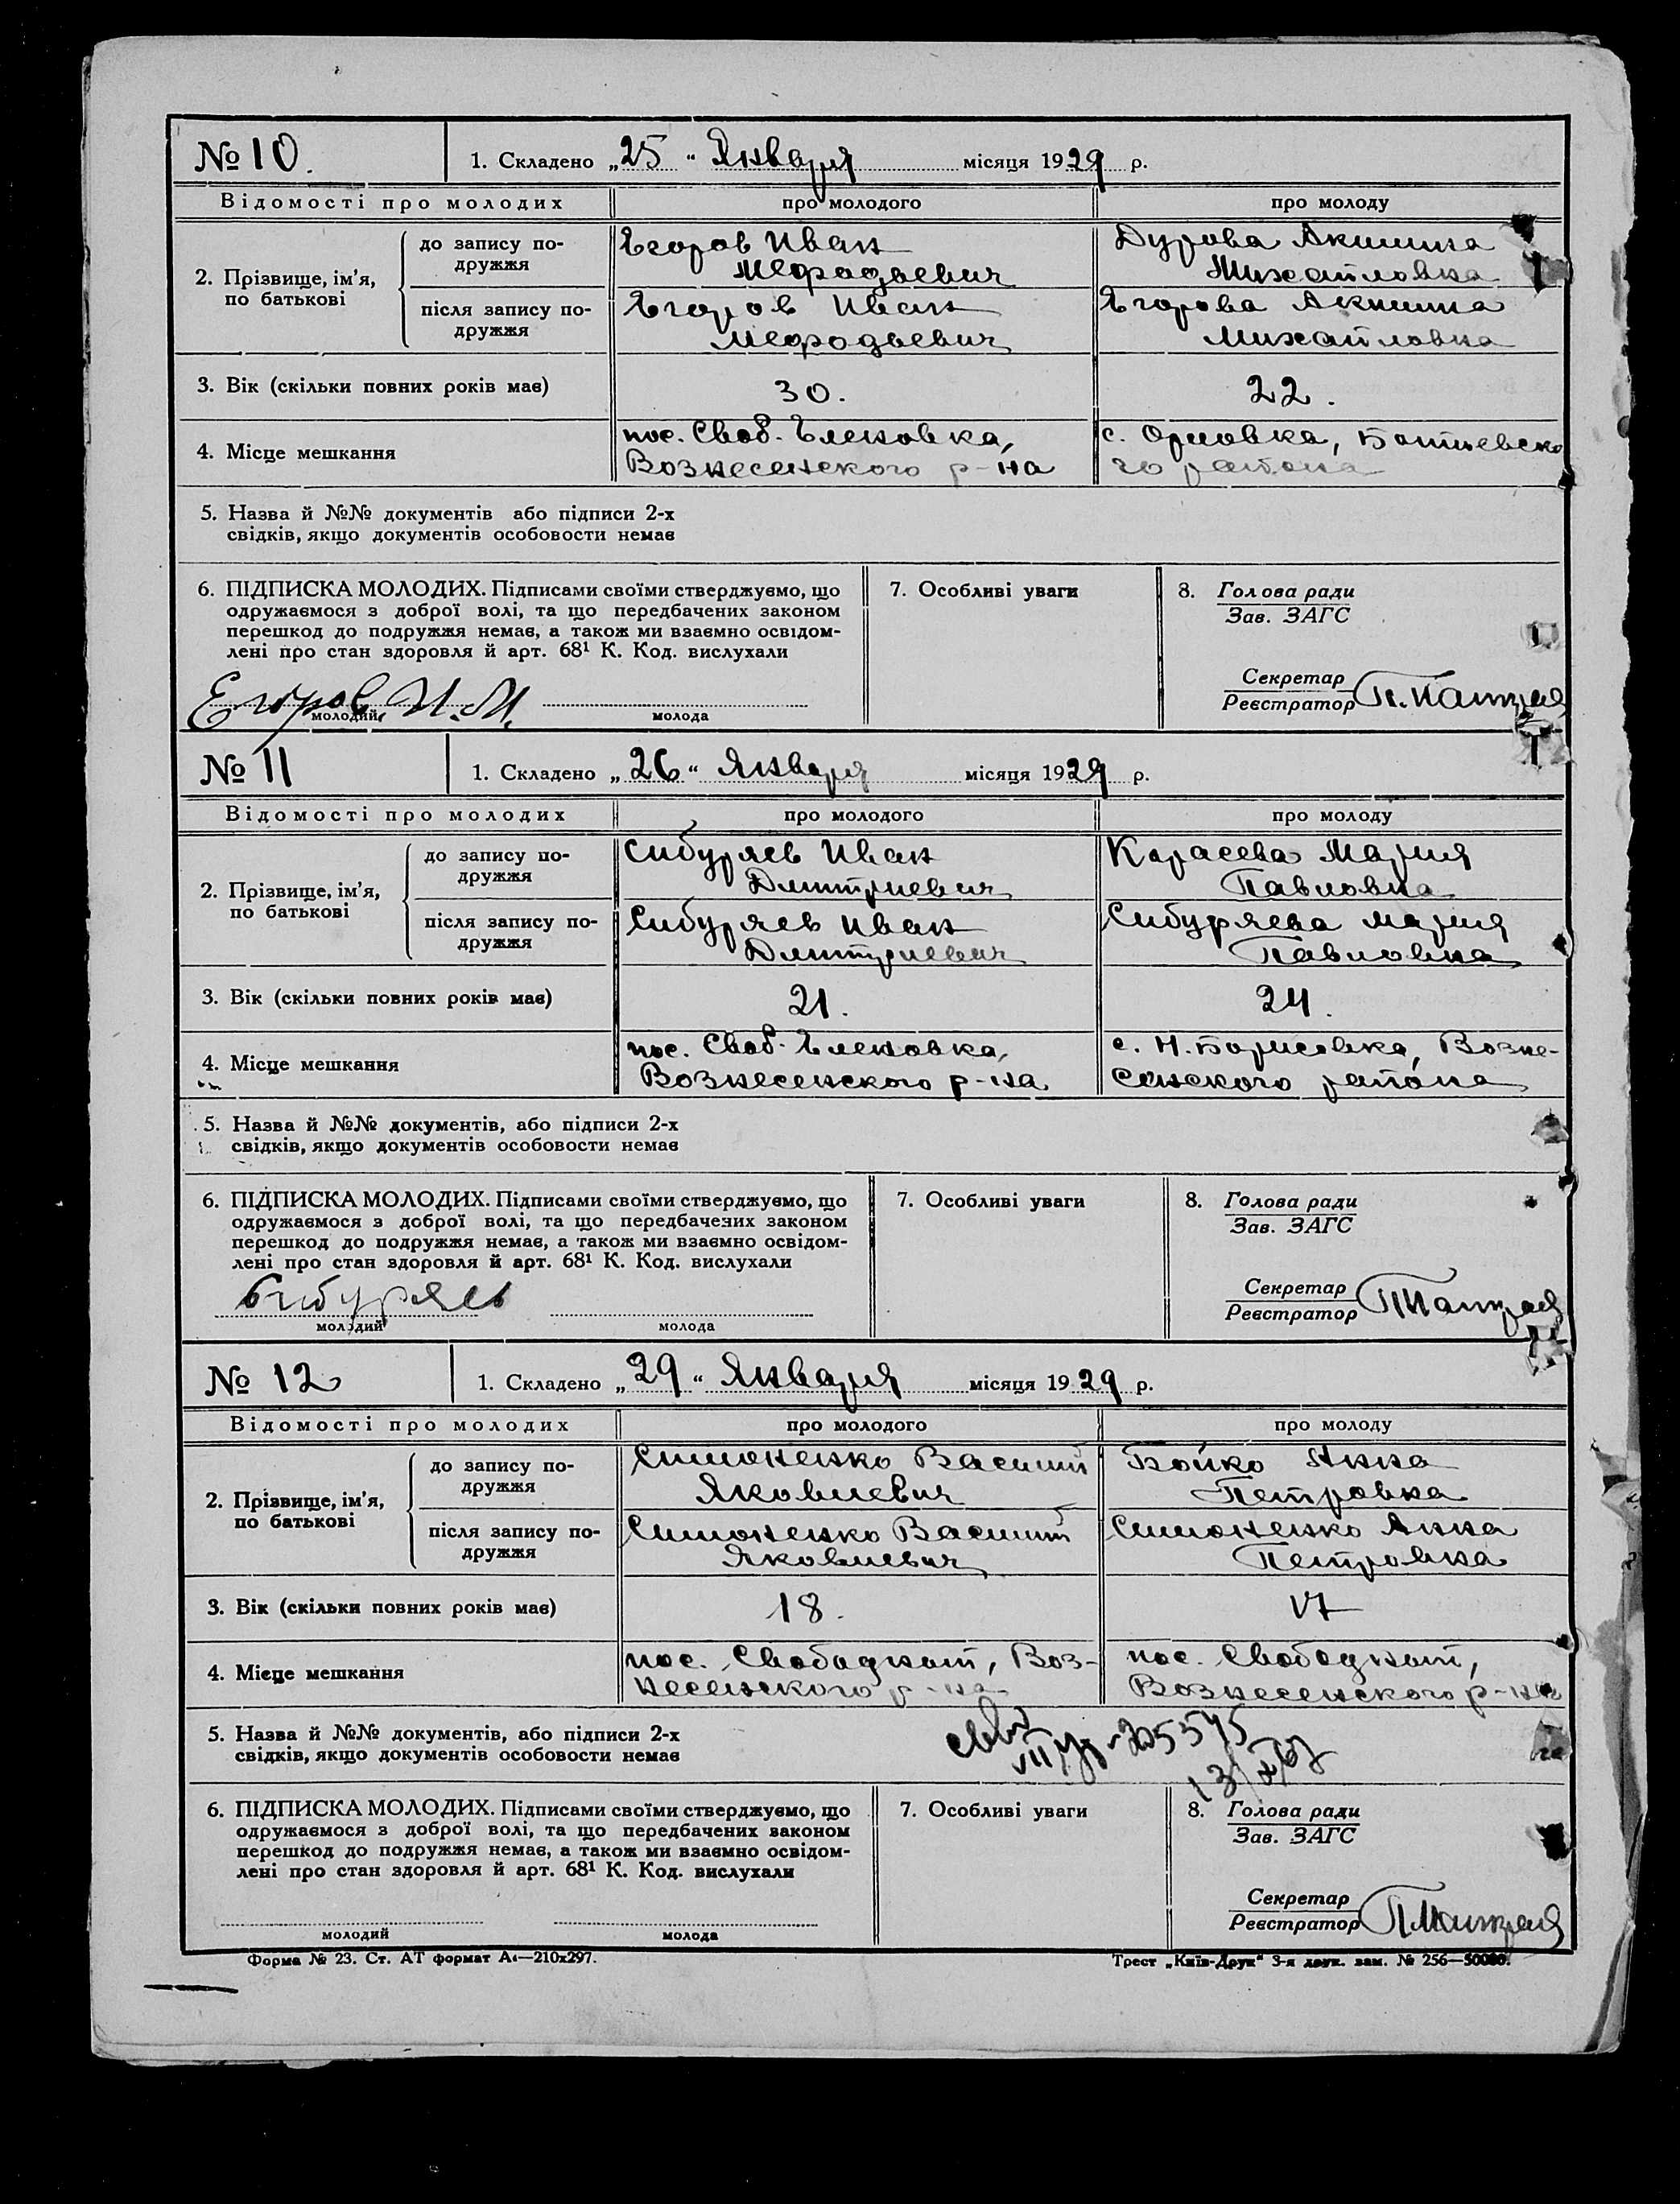 № 10.
1. Складено „25“ Января місяця 1929 р.
Відомості про молодих
про молодого
про молоду
2. Прізвище, ім’я, по батькові
до запису подружжя
Егоров Иван
Мефодьевич
Дурова Акишна
Михайловна
після запису подружжя
Егоров Иван
Мефодьевич
Егорова Акишна
Михайловна
3. Вік (скільки повних років має)
30.
22.
4. Місце мешкання
пос. Своб. Еленовка,
Вознесенского р-на
с. Орловка, Ботиевско
го района
5. Назва й №№ документів або підписи 2-х
свідків, якщо документів особовости немає
6. ПІДПИСКА МОЛОДИХ. Підписами своїми стверджуємо, що
одружаємося з доброї волі, та що передбачених законом
перешкод до подружжя немає, а також ми взаємно освідом-
лені про стан здоровля й арт. 68¹ К. Код. вислухали
Егоров И.М.
молодий
молода
7. Особливі уваги
8. Голова ради
Зав. ЗАГС
Секретар
Реєстратор
№ 11
1. Складено „26“ Января місяця 1929 р.
Відомості про молодих
про молодого
про молоду
2. Прізвище, ім’я,
по батькові
до запису по-
дружжя
Сибуряев Иван
Дмитриевич
Карасева Мария
Павловна
після запису по-
дружжя
Сибуряев Иван
Дмитриевич
Сибуряева Мария
Павловна
3. Вік (скільки повних років має)
21.
24.
4. Місце мешкання
пос. Своб. Еленовка,
Вознесенского р-на
с. Н. Борисовка, Возне-
сенского района
5. Назва й №№ документів, або підписи 2-х
свідків, якщо документів особовости немає
6. ПІДПИСКА МОЛОДИХ. Підписами своїми стверджуємо, що
одружаємося з доброї волі, та що передбачених законом
перешкод до подружжя немає, а також ми взаємно освідом-
лені про стан здоровля й арт. 68¹ К. Код. вислухали
Сибуряев
молодий
молода
7. Особливі уваги
8. Голова ради
Зав. ЗАГС
Секретар
Реєстратор
№ 12
1. Складено „29“ Января місяця 1929 р.
Відомості про молодих
про молодого
про молоду
2. Прізвище, ім’я,
по батькові
до запису по-
дружжя
Симоненко Василий
Яковлевич
Бойко Анна
Петровна
після запису по-
дружжя
Симоненко Василий
Яковлевич
Симоненко Анна
Петровна
3. Вік (скільки повних років має)
18.
17
4. Місце мешкання
пос. Свободный, Воз-
несенского р-на
пос. Свободный,
Вознесенского р-на
5. Назва й №№ документів, або підписи 2-х
свідків, якщо документів особовости немає
6. ПІДПИСКА МОЛОДИХ. Підписами своїми стверджуємо, що
одружаємося з доброї волі, та що передбачених законом
перешкод до подружжя немає, а також ми взаємно освідом-
лені про стан здоровля й арт. 68¹ К. Код. вислухали
молодий
молода
7. Особливі уваги
8. Голова ради
Зав. ЗАГС
Секретар
Реєстратор
Форма № 23. Ст. АТ формат А₄—210х297.
Трест „Київ-Друк“ 3-я друк. зам. № 256—50000.